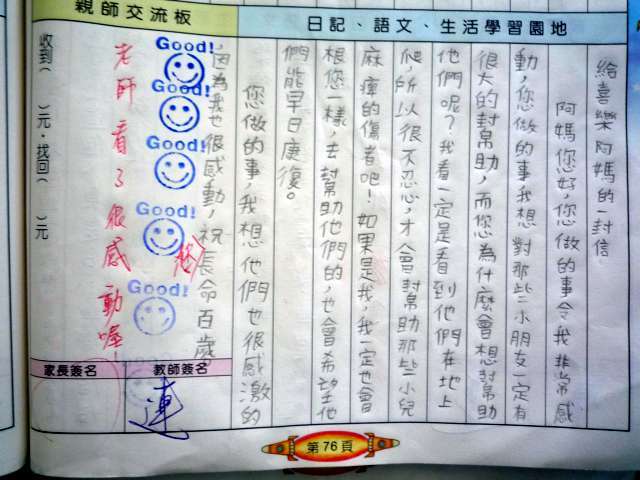 親師交流板
日記、語文、生活學習園地
給喜樂阿媽的一封信
阿媽您好，您做的事令我非常感
動，您做的事我想對那些小朋友一定有
很大的幫助，而您為什麼會想幫助
他們呢？我看一定是看到他們在地上
爬，所以很不忍心，才會幫助那些小兒
麻痺的傷者吧！如果是我，我一定也會
根您一樣，去幫助他們的，也會希望他
們能早日康復。
您做的事，我想他們也很感激的
，因為我也很感動，祝長命百歲
Good!
Good!
Good!
Good!
Good!
老師看了很感動喔！
收到（　）元．找回（　）元
教師簽名
連
家長簽名
第76頁